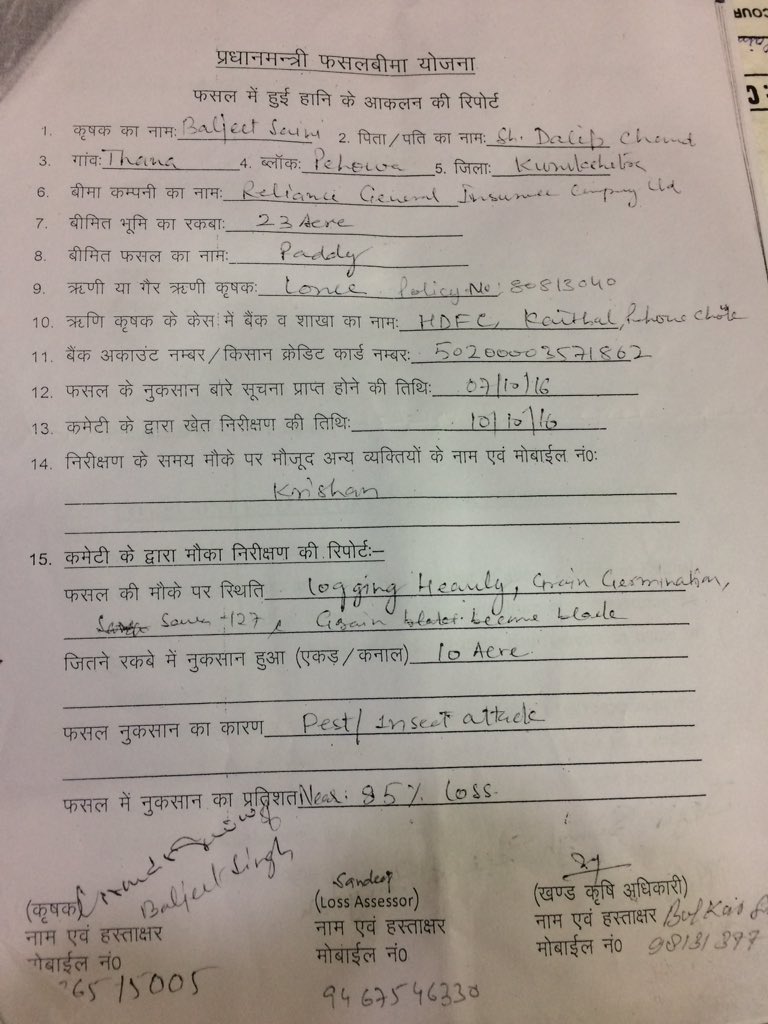 COUR
प्रधानमन्त्री फसलबीमा योजना
फसल में हुई हानि के आकलन की रिपोर्ट
1. कृषक का नाम: Baljeet Saini 2. पिता/पति का नाम: Sh. Dalip Chand
3. गांव: Thana 4. ब्लॉक: Pehowa 5. जिला: Kurukshetra
6. बीमा कम्पनी का नाम: Reliance General Insurance Company Ltd
7. बीमित भूमि का रकबा: 23 Acre
8. बीमित फसल का नाम: Paddy
9. ऋणी या गैर ऋणी कृषक: Lonee Policy No: 80813040
10. ऋणि कृषक के केस में बैंक व शाखा का नाम: HDFC, Kaithal,
11. बैंक अकाउंट नम्बर/किसान क्रेडिट कार्ड नम्बर: 50200003571862
12. फसल के नुकसान बारे सूचना प्राप्त होने की तिथि: 07/10/16
13. कमेटी के द्वारा खेत निरीक्षण की तिथि: 10/10/16
14. निरीक्षण के समय मौके पर मौजूद अन्य व्यक्तियों के नाम एवं मोबाईल नं0:
Krishan
15. कमेटी के द्वारा मौका निरीक्षण की रिपोर्ट:-
फसल की मौके पर स्थिति logging Heavly, Grain Germination,
Grain become black
जितने रकबे में नुकसान हुआ (एकड़/कनाल) 10 Acre.
फसल नुकसान का कारण Pest/Insect attack
फसल में नुकसान का प्रतिशत Near: 85% Loss.
Baljeet Singh
Sandeep
(कृषक)
(Loss Assessor)
(खण्ड कृषि अधिकारी)
नाम एवं हस्ताक्षर
नाम एवं हस्ताक्षर
नाम एवं हस्ताक्षर
मोबाईल नं0
मोबाईल नं0
मोबाईल नं0 98131377
65 15005
9467546330